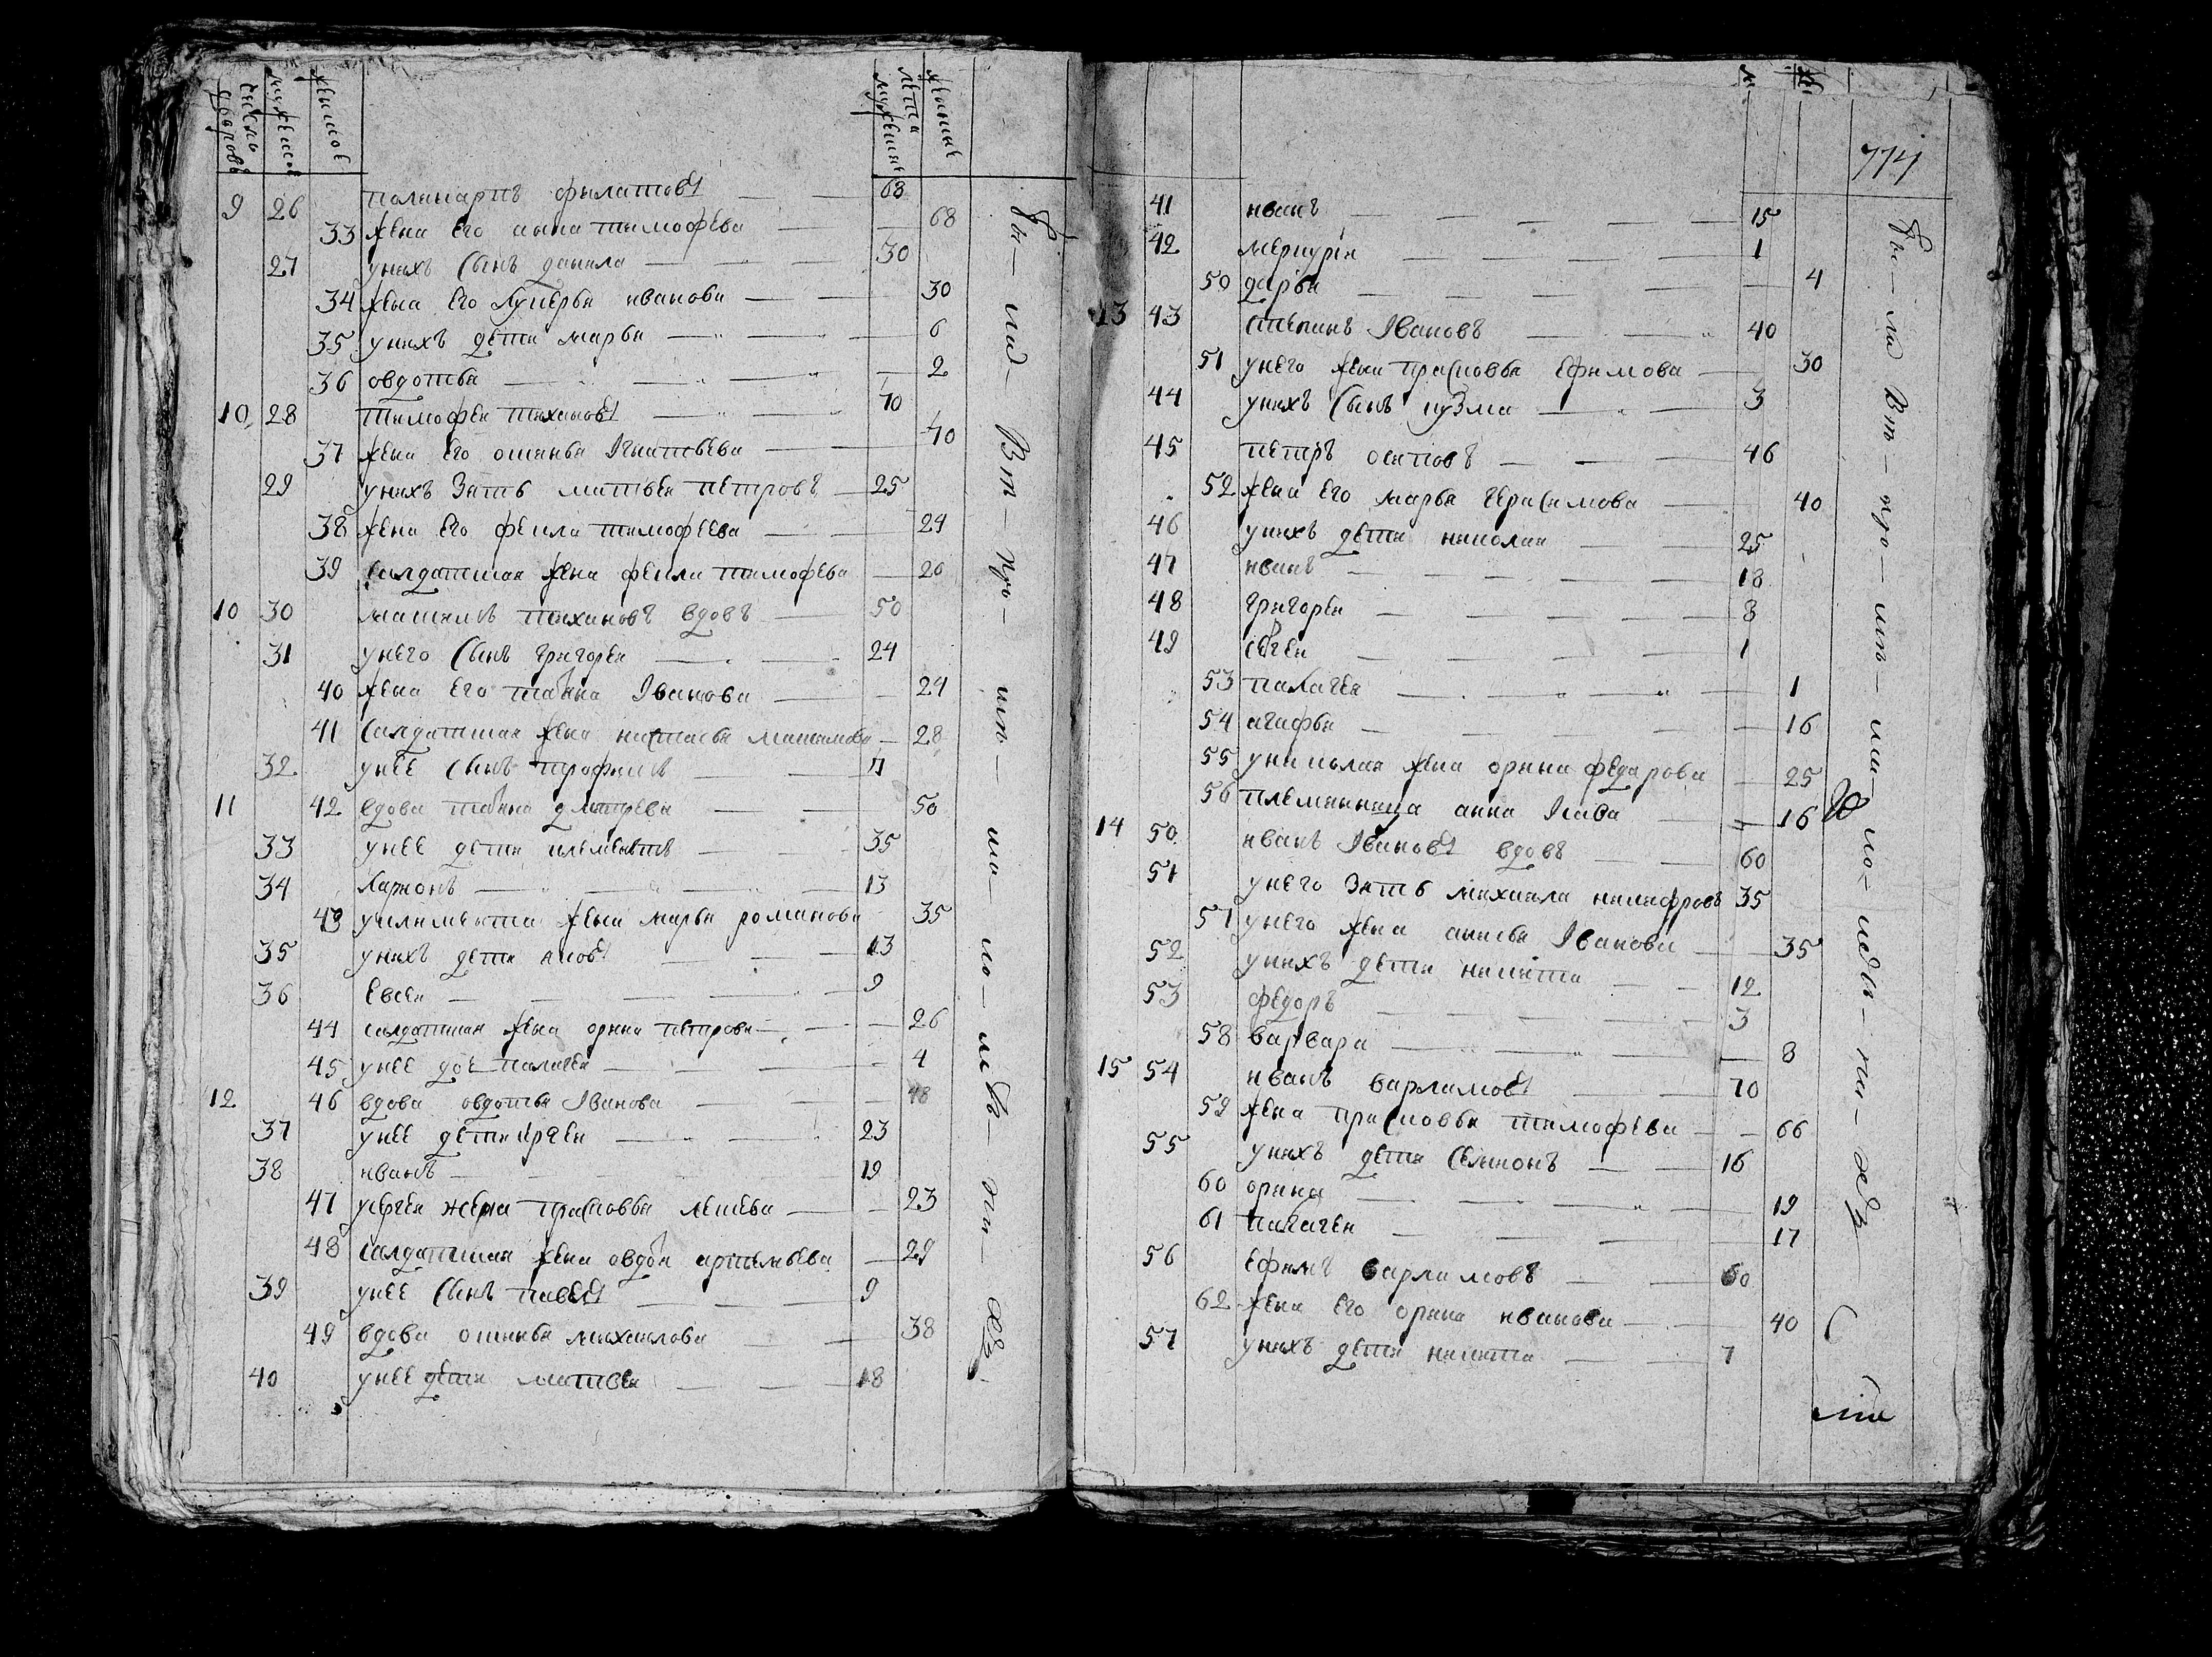 число дворовъ мужеска женска лета мужеска женска
9 26 поликарпъ филатовъ 68
33 жена его анна тимофѣева 68
27 унихъ сынъ данила 30
34 жена его лукерья иванова 30
35 унихъ дети марья 6
36 овдотья 2
10 28 тимофеи тихановъ 70
37 жена его огинья игнатьева 70
29 унихъ зять матвеи петровъ 25
38 жена его фекла тимофеева 24
39 салдатская жена фекла тимофева 20
10 30 максимъ тихановъ вдовъ 50
31 унего сынъ григореи 24
40 жена его татяна иванова 24
41 салдатская жена настасья максимова 28
32 унее сынъ трофимъ
11 42 вдова татяна дмитрева 50
33 унее дети клементъ 35
34 ларионъ 13
43 уклиментиа жена марья романова 35
35 унихъ дети яковъ 13
36 евсеи 9
44 салдатская жена орина петрова 26
45 унее доч палагея 4
12 46 вдова овдотья иванова 48
37 унее дети сергеи 23
38 иванъ 19
47 усергея жена прасковья
48 салдатская жена овдотя артемьева 29
39 унее сынъ павелъ 9
49 вдова огинья михаилова 38
40 унее дети матвеи 18
бы ла вт про шт ша го
774
41 иванъ 15
42 меркуреи 1
50 дарья 4
13 43 степанъ ивановъ 40
51 унего жена прасковья ефимова 30
44 унихъ сынъ кузма 3
45 петръ осиповъ 46
52 жена его марья герасимова 40
46 унихъ дети николаи 25
47 иванъ 18
48 григореи 8
49 сергеи 1
53 палагея 1
54 агафья 16
55 униколая жена орина федарова 25
56 племянница анна 16
14 50 иванъ ивановъ вдовъ 60
51 унего зять михаила никифровъ 35
57 унего жена анисья иванова 35
52 унихъ дети никита 12
53 федоръ 3
58 варвара 8
15 54 иванъ варламовъ 70
59 жена прасковья тимофева 66
55 унихъ дети семионъ 16
60 орина 19
61 палагея 17
56 ефимъ варламовъ 60
62 жена его орина иванова 40
57 унихъ дети никита 7